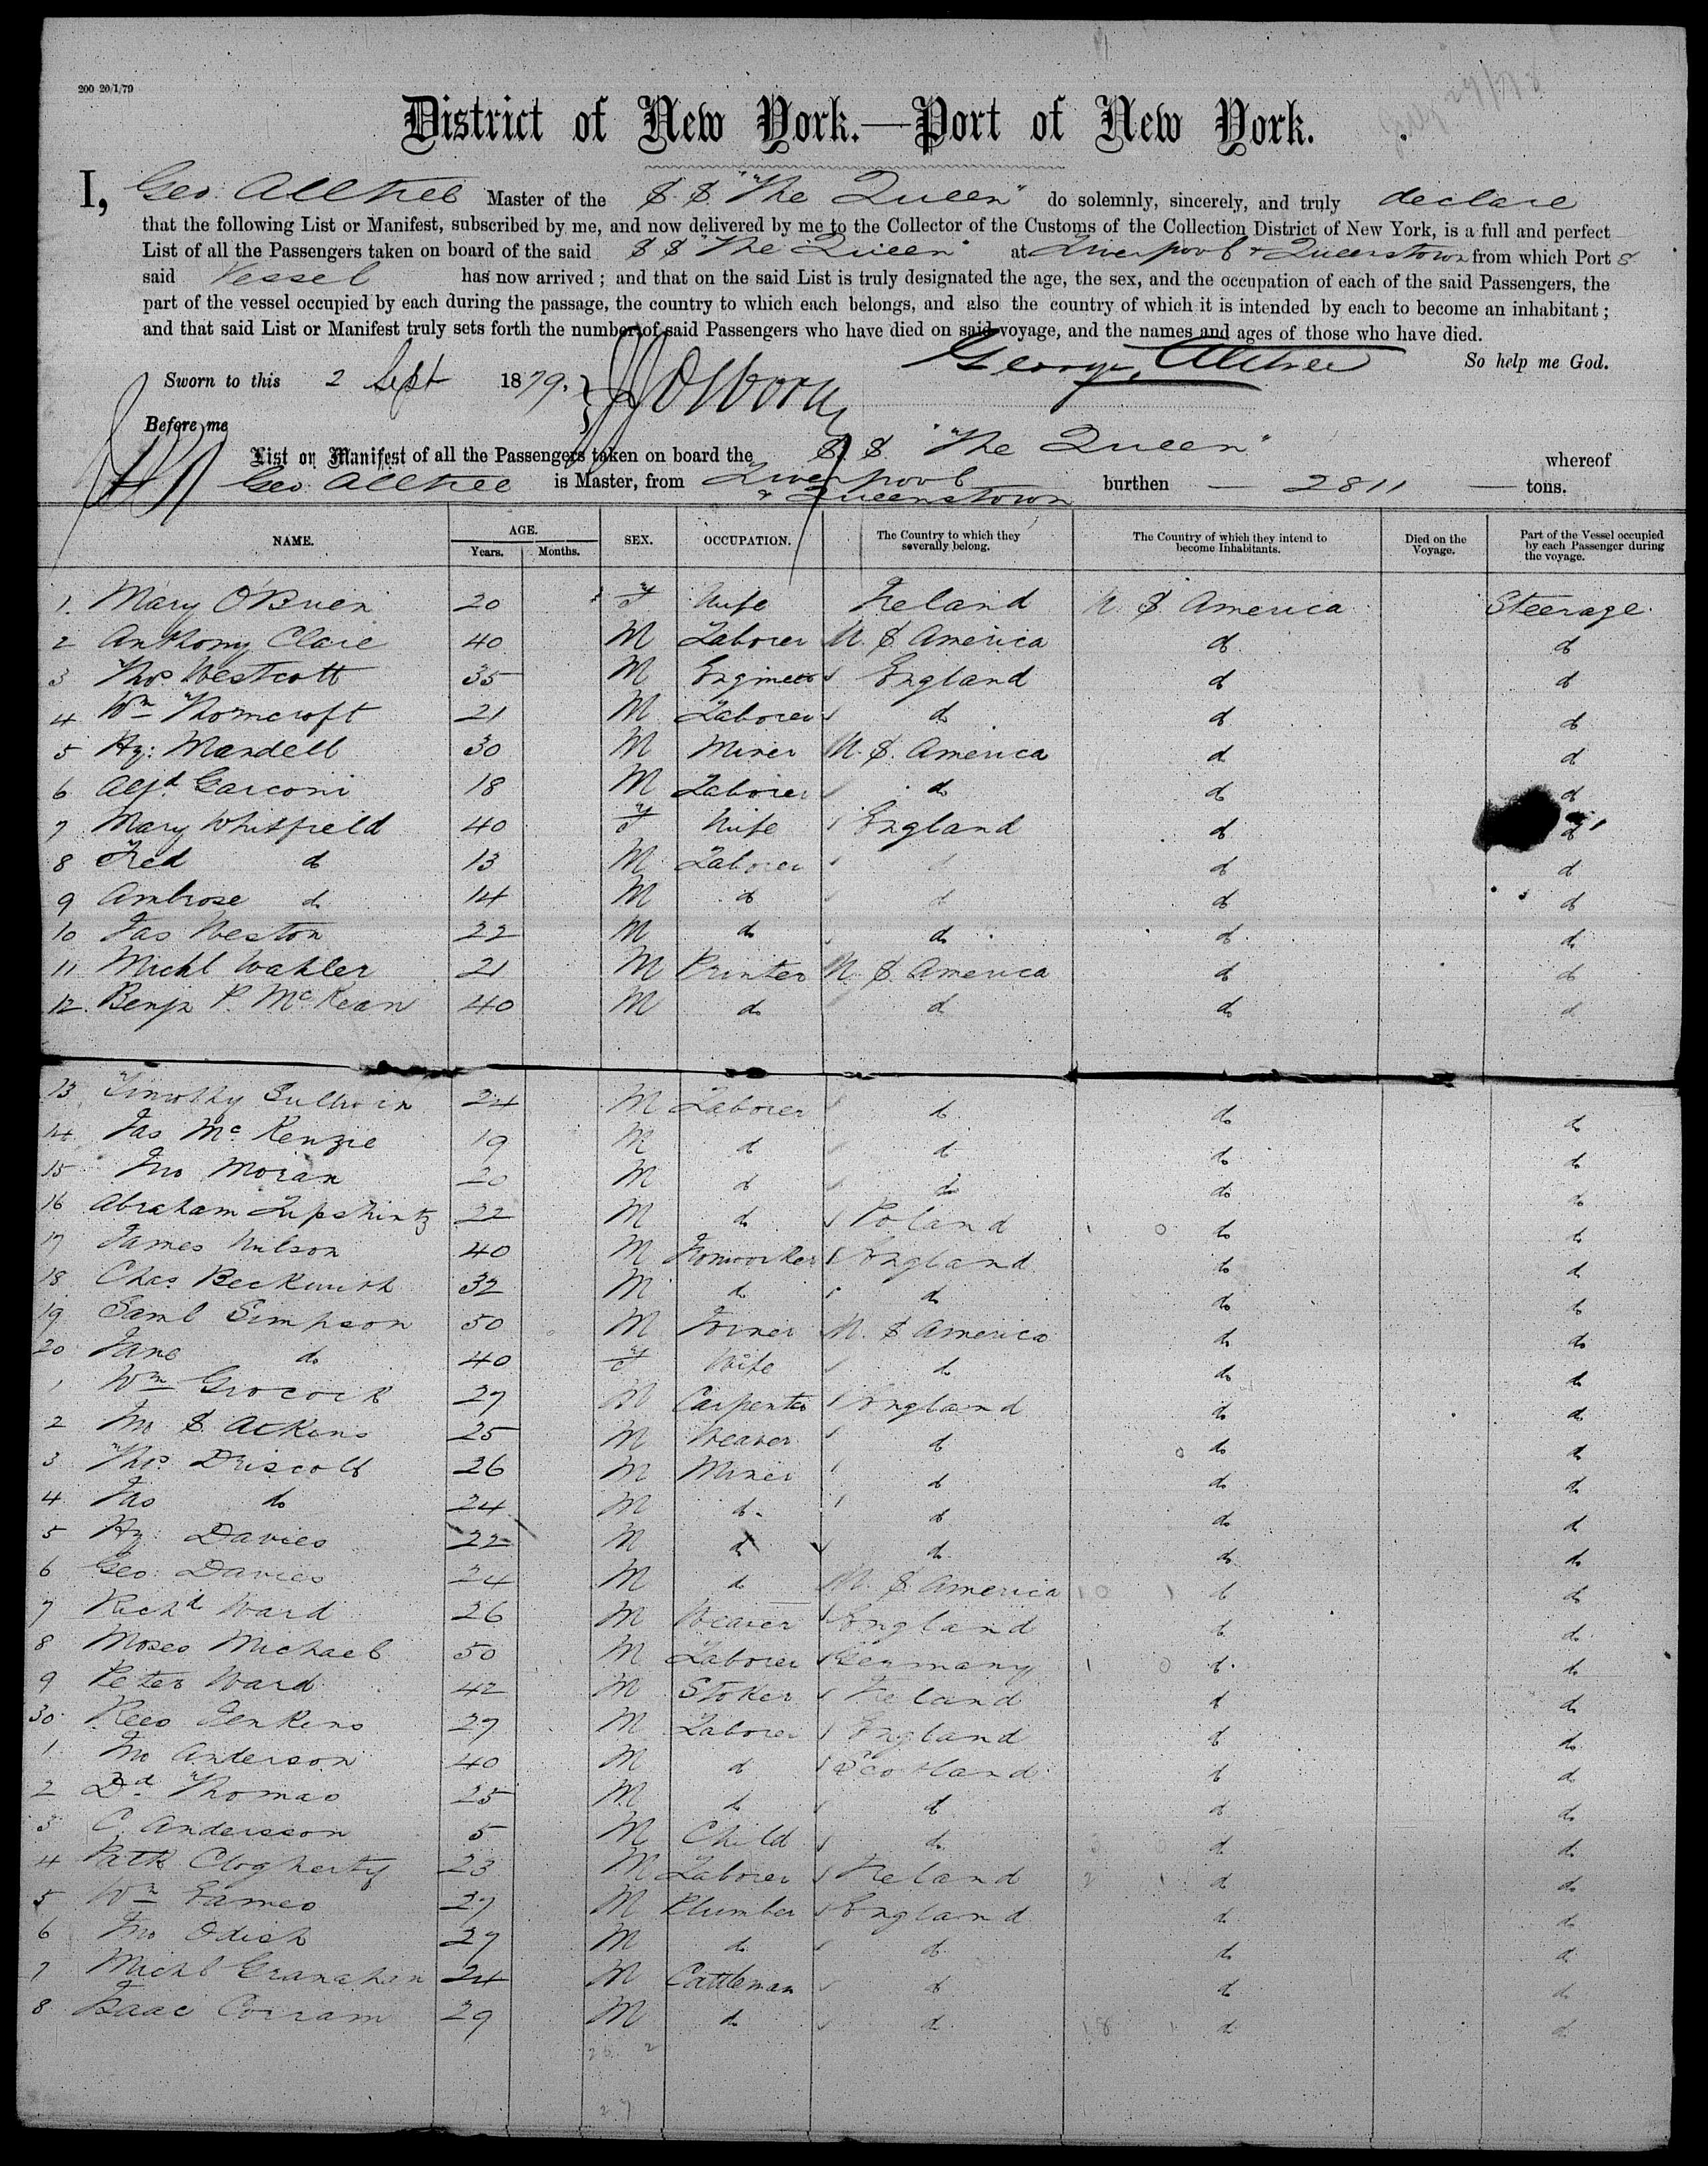 200 20/1/79
District of New York.—Port of New York.
I, Geo: Alltree Master of the S.S. "The Queen" do solemnly, sincerely, and truly declare
that the following List or Manifest, subscribed by me, and now delivered by me to the Collector of the Customs of the Collection District of New York, is a full and perfect
List of all the Passengers taken on board of the said S S "The Queen" at Liverpool & Queenstown from which Port s
said Vessel has now arrived; and that on the said List is truly designated the age, the sex, and the occupation of each of the said Passengers, the
part of the vessel occupied by each during the passage, the country to which each belongs, and also the country of which it is intended by each to become an inhabitant;
and that said List or Manifest truly sets forth the number of said Passengers who have died on said voyage, and the names and ages of those who have died.
George Alltree So help me God.
Sworn to this 2 Sept 1879.
Before me
List or Manifest of all the Passengers taken on board the S.S. "The Queen" whereof
Geo. Alltree is Master, from Liverpool & Queenstown burthen — 2811 — tons.
NAME. AGE. Years. Months. SEX. OCCUPATION. The Country to which they severally belong. The Country of which they intend to become Inhabitants. Died on the Voyage. Part of the Vessel occupied by each Passenger during the voyage.
1. Mary O'Brien 20 f Wife Ireland U. S. America Steerage
2 Anthony Clare 40 M Laborer U. S. America do do
3 Thos Westcott 35 M Engineer England do do
4 Wm Thorncroft 21 M Laborer do do do
5 Hy: Mandell 30 M Miner U. S. America do do
6 Alfd Garconi 18 M Laborer do do do
7 Mary Whitfield 40 f Wife England do do
8 Fred do 13 M Laborer do do do
9 Ambrose do 14 M do do do do
10 Jas Weston 22 M do do do do
11 Michl Wahler 21 M Printer U. S. America do do
12. Benjn P. McKean 40 M do do do do
13 Timothy Sullivan 24 M Laborer do do do
14 Jas McKenzie 19 M do do do do
15 Jno Moran 20 M do do do do
16 Abraham Lipshintz 22 M do Poland do do
17 James Wilson 40 M Ironworker England do do
18 Chas. Beckwith 32 M do do do do
19 Saml Simpson 50 M Joiner U. S America do do
20 Jane do 40 f Wife do do do
1 Wm Grocock 27 M Carpenter England do do
2 Jno S. Ackens 25 M Weaver do do do
3 Thos. Driscoll 26 M Miner do do do
4 Jas do 24 M do do do do
5 Hy: Davies 22 M do do do do
6 Geo: Davies 24 M do U. S. America do do
7 Richd Ward 26 M Weaver England do do
8 Moses Michael 50 M Laborer Germany do do
9 Peter Ward 42 M Stoker Ireland do do
30 Rees Jenkins 27 M Laborer England do do
1 Jno Anderson 40 M do Scotland do do
2 Dd Thomas 25 M do do do do
3 C. Andersson 5 M Child do do do
4 Patk Clogherty 23 M Laborer Ireland do do
5 Wm Eames 27 M Plumber England do do
6 Jno Odish 27 M do do do do
7 Michl Granahan 24 M Cattleman do do do
8 Isaac Corram 29 M do do do do